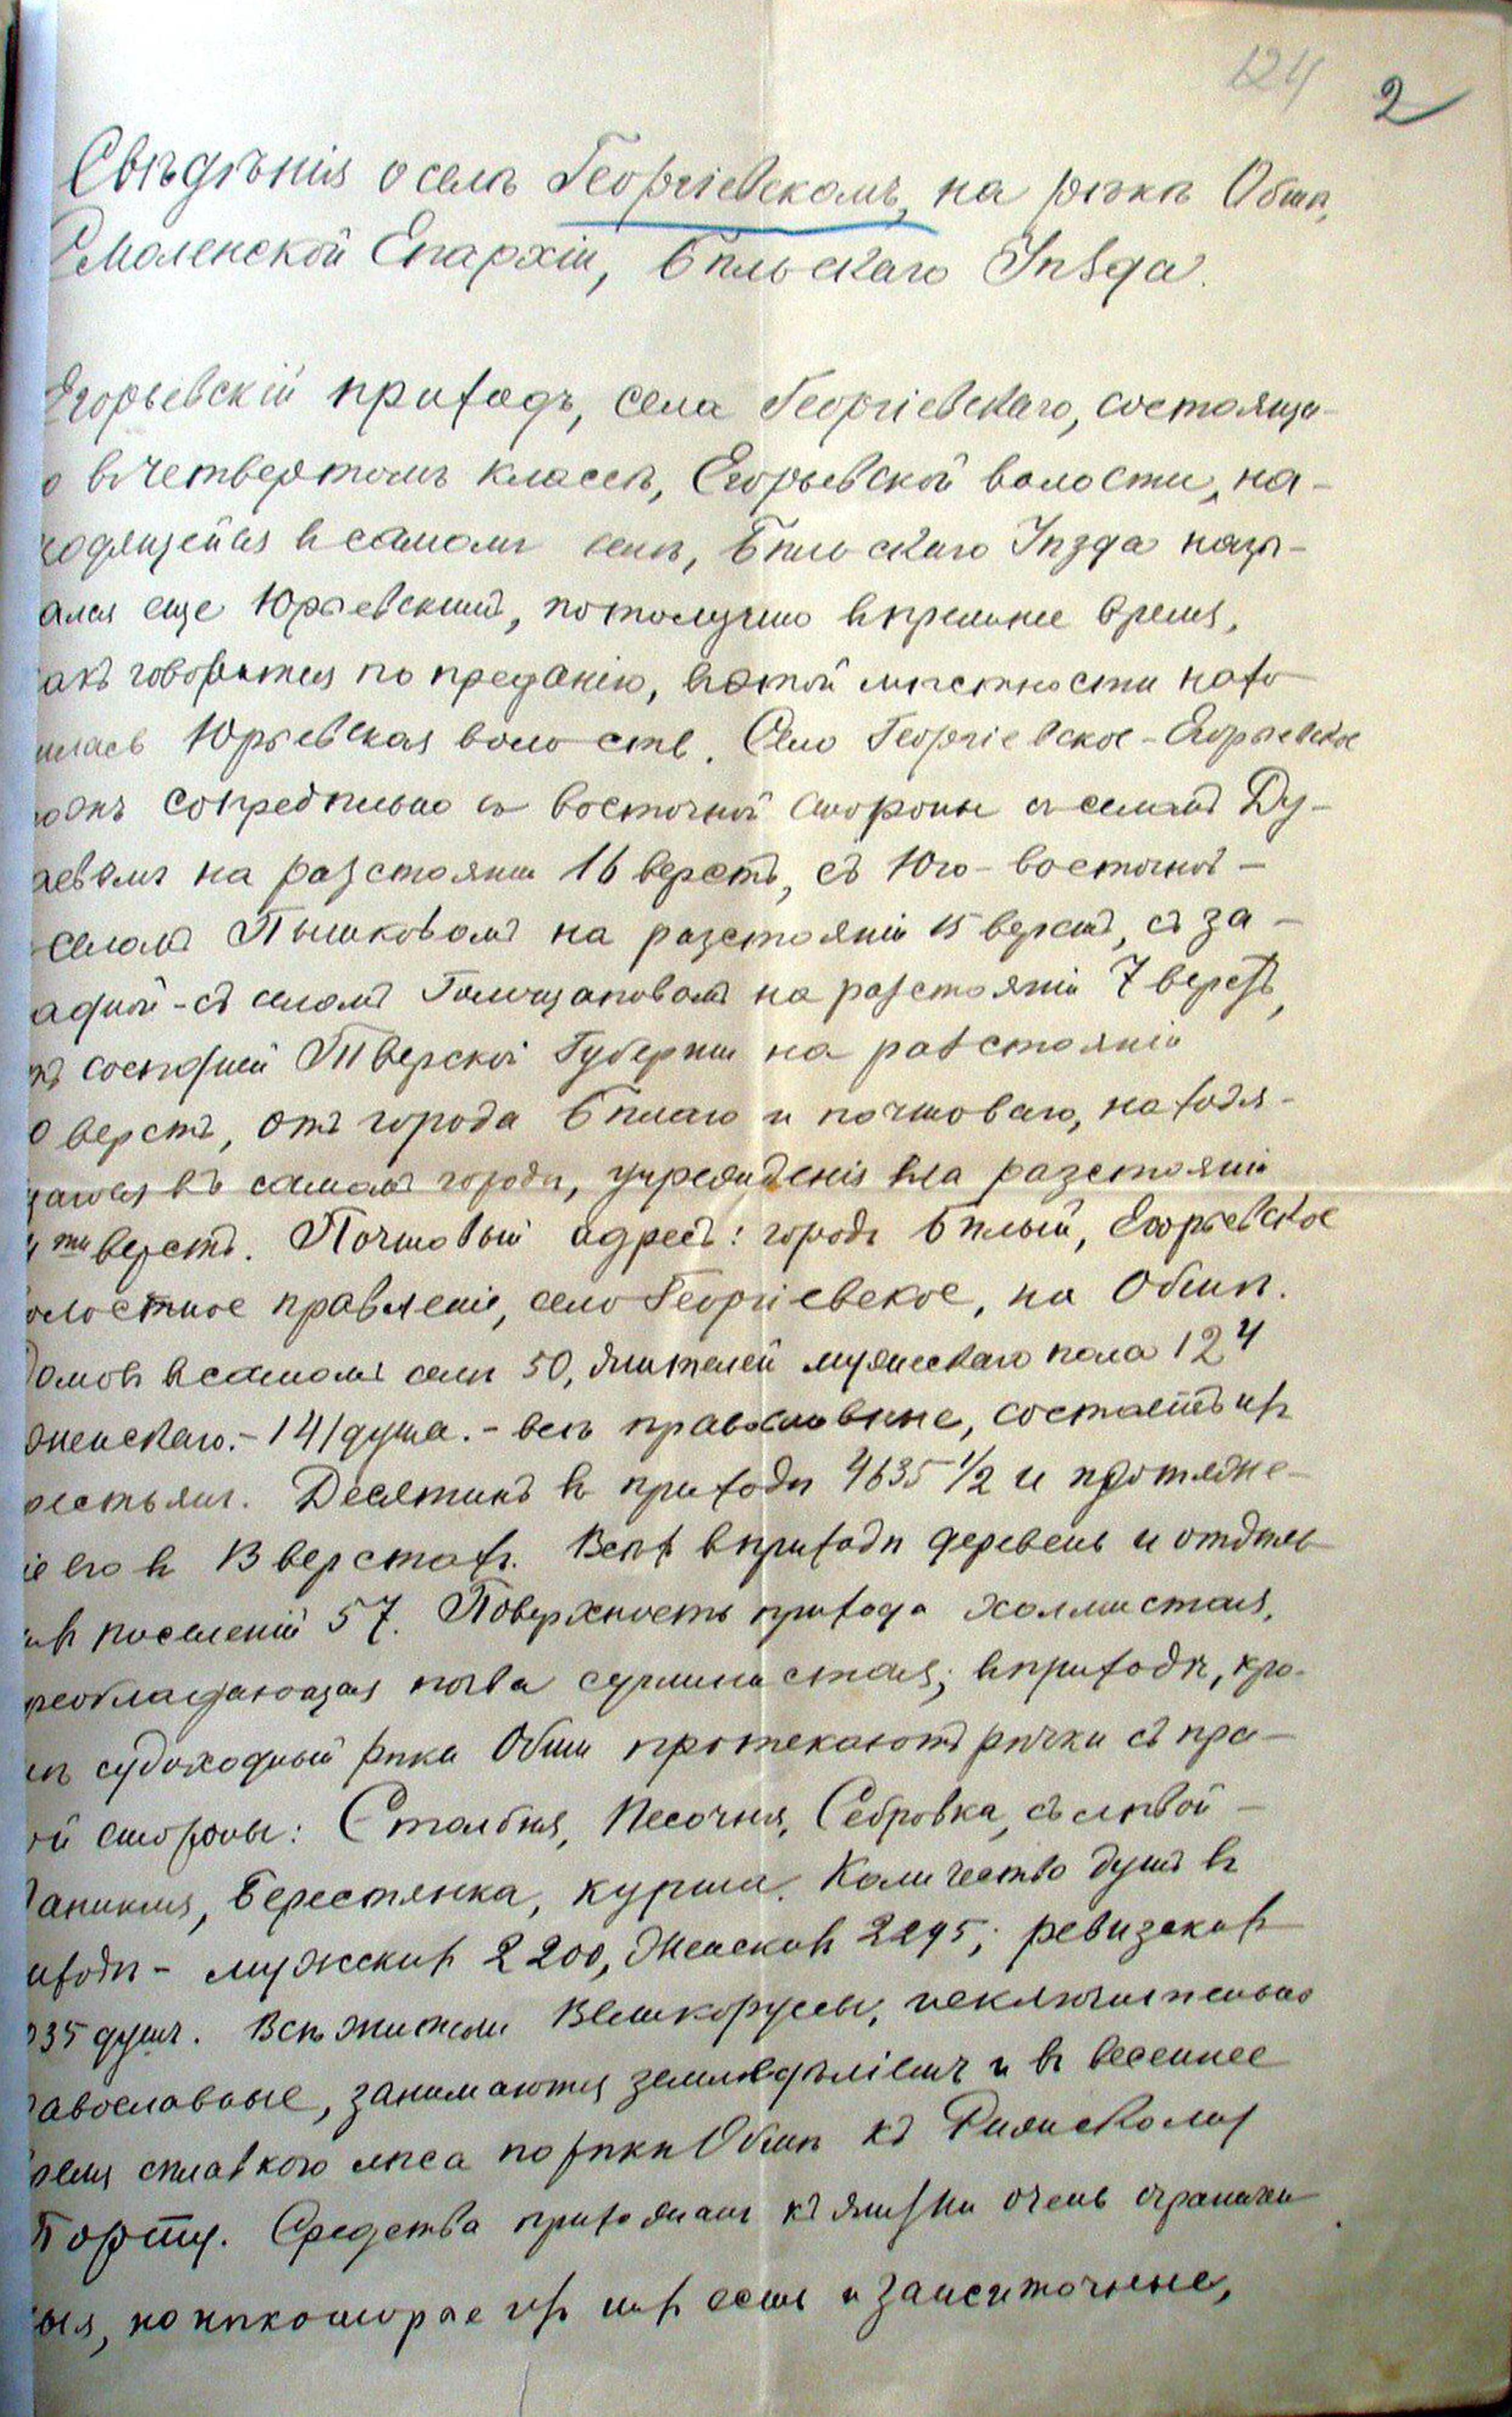 124 2
Свѣдѣнія о селѣ Георгіевскомъ, на рѣкѣ Обшѣ,
Смоленской Епархіи, Бѣльскаго Уѣзда.
Егорьевскій приходъ, села Георгіевскаго, состояща-
о въ четвертомъ классѣ, Егорьевской волости, на-
ходящейся въ самомъ селѣ, Бѣльскаго Уѣзда назы-
ался еще Юрьевскимъ, потому что въ прежнее время,
акъ говорится по преданію, въ этой мѣстности нахо
илась Юрьевская волость. Село Георгіевское-Егорьевское
сопредѣльно съ восточной стороны съ селомъ Ду-
аевымъ на разстояніи 16 верстъ, съ Юго-восточной -
селомъ Пышковомъ на разстояніи 15 верстъ, съ за-
адной - съ селомъ на разстояніи 7 верстъ,
тъ сосѣдней Тверской Губерніи на разстояніи
0 верстъ, отъ города Бѣлаго и почтоваго, находя-
щагося въ самомъ городѣ, учрежденія на разстояніи
ти верстъ. Почтовый адресъ: городъ Бѣлый, Егорьевское
олостное правленіе, село Георгіевское, на Обшѣ.
Домовъ въ самомъ селѣ 50, жителей мужескаго пола 124
женскаго. - 141 душа. - всѣ православные, состоятъ изъ
рестьянъ. Десятинъ въ приходѣ 4635 1/2 и протяже-
іе его въ 13 верстахъ. Всѣхъ въ приходѣ деревень и отдѣль
ыхъ поселеній 57. Поверхность прихода холмистая,
реобладающая почва суглинистая; въ приходѣ, кро-
мѣ судоходный рѣки Обши протекаютъ рѣчки съ пра-
ой стороны: Столбня, Песочня, Себровка, съ лѣвой -
Берестянка, Курша. Количество душъ въ
иходѣ - мужскихъ 2200, женскихъ 2295; ревизскихъ
035 душъ. Всѣ жители Великоруссы, исключительно
равославные, занимаются земледѣліемъ и въ весеннее
ремя сплавкою лѣса по рѣкѣ Обшѣ къ Рижскому
Порту. Средства прихожанъ къ жизни очень ограничен
ыя, но нѣкоторые изъ нихъ есть и зажиточные,